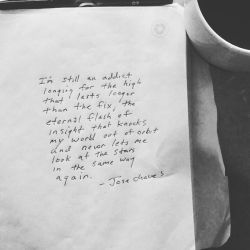 I'm still an addict
longing for the high
that lasts longer
than the fix, the
eternal flash of
insight that knocks
my world out of orbit
and never lets me
look at the stars
in the same way
again.
- Jose Chaves